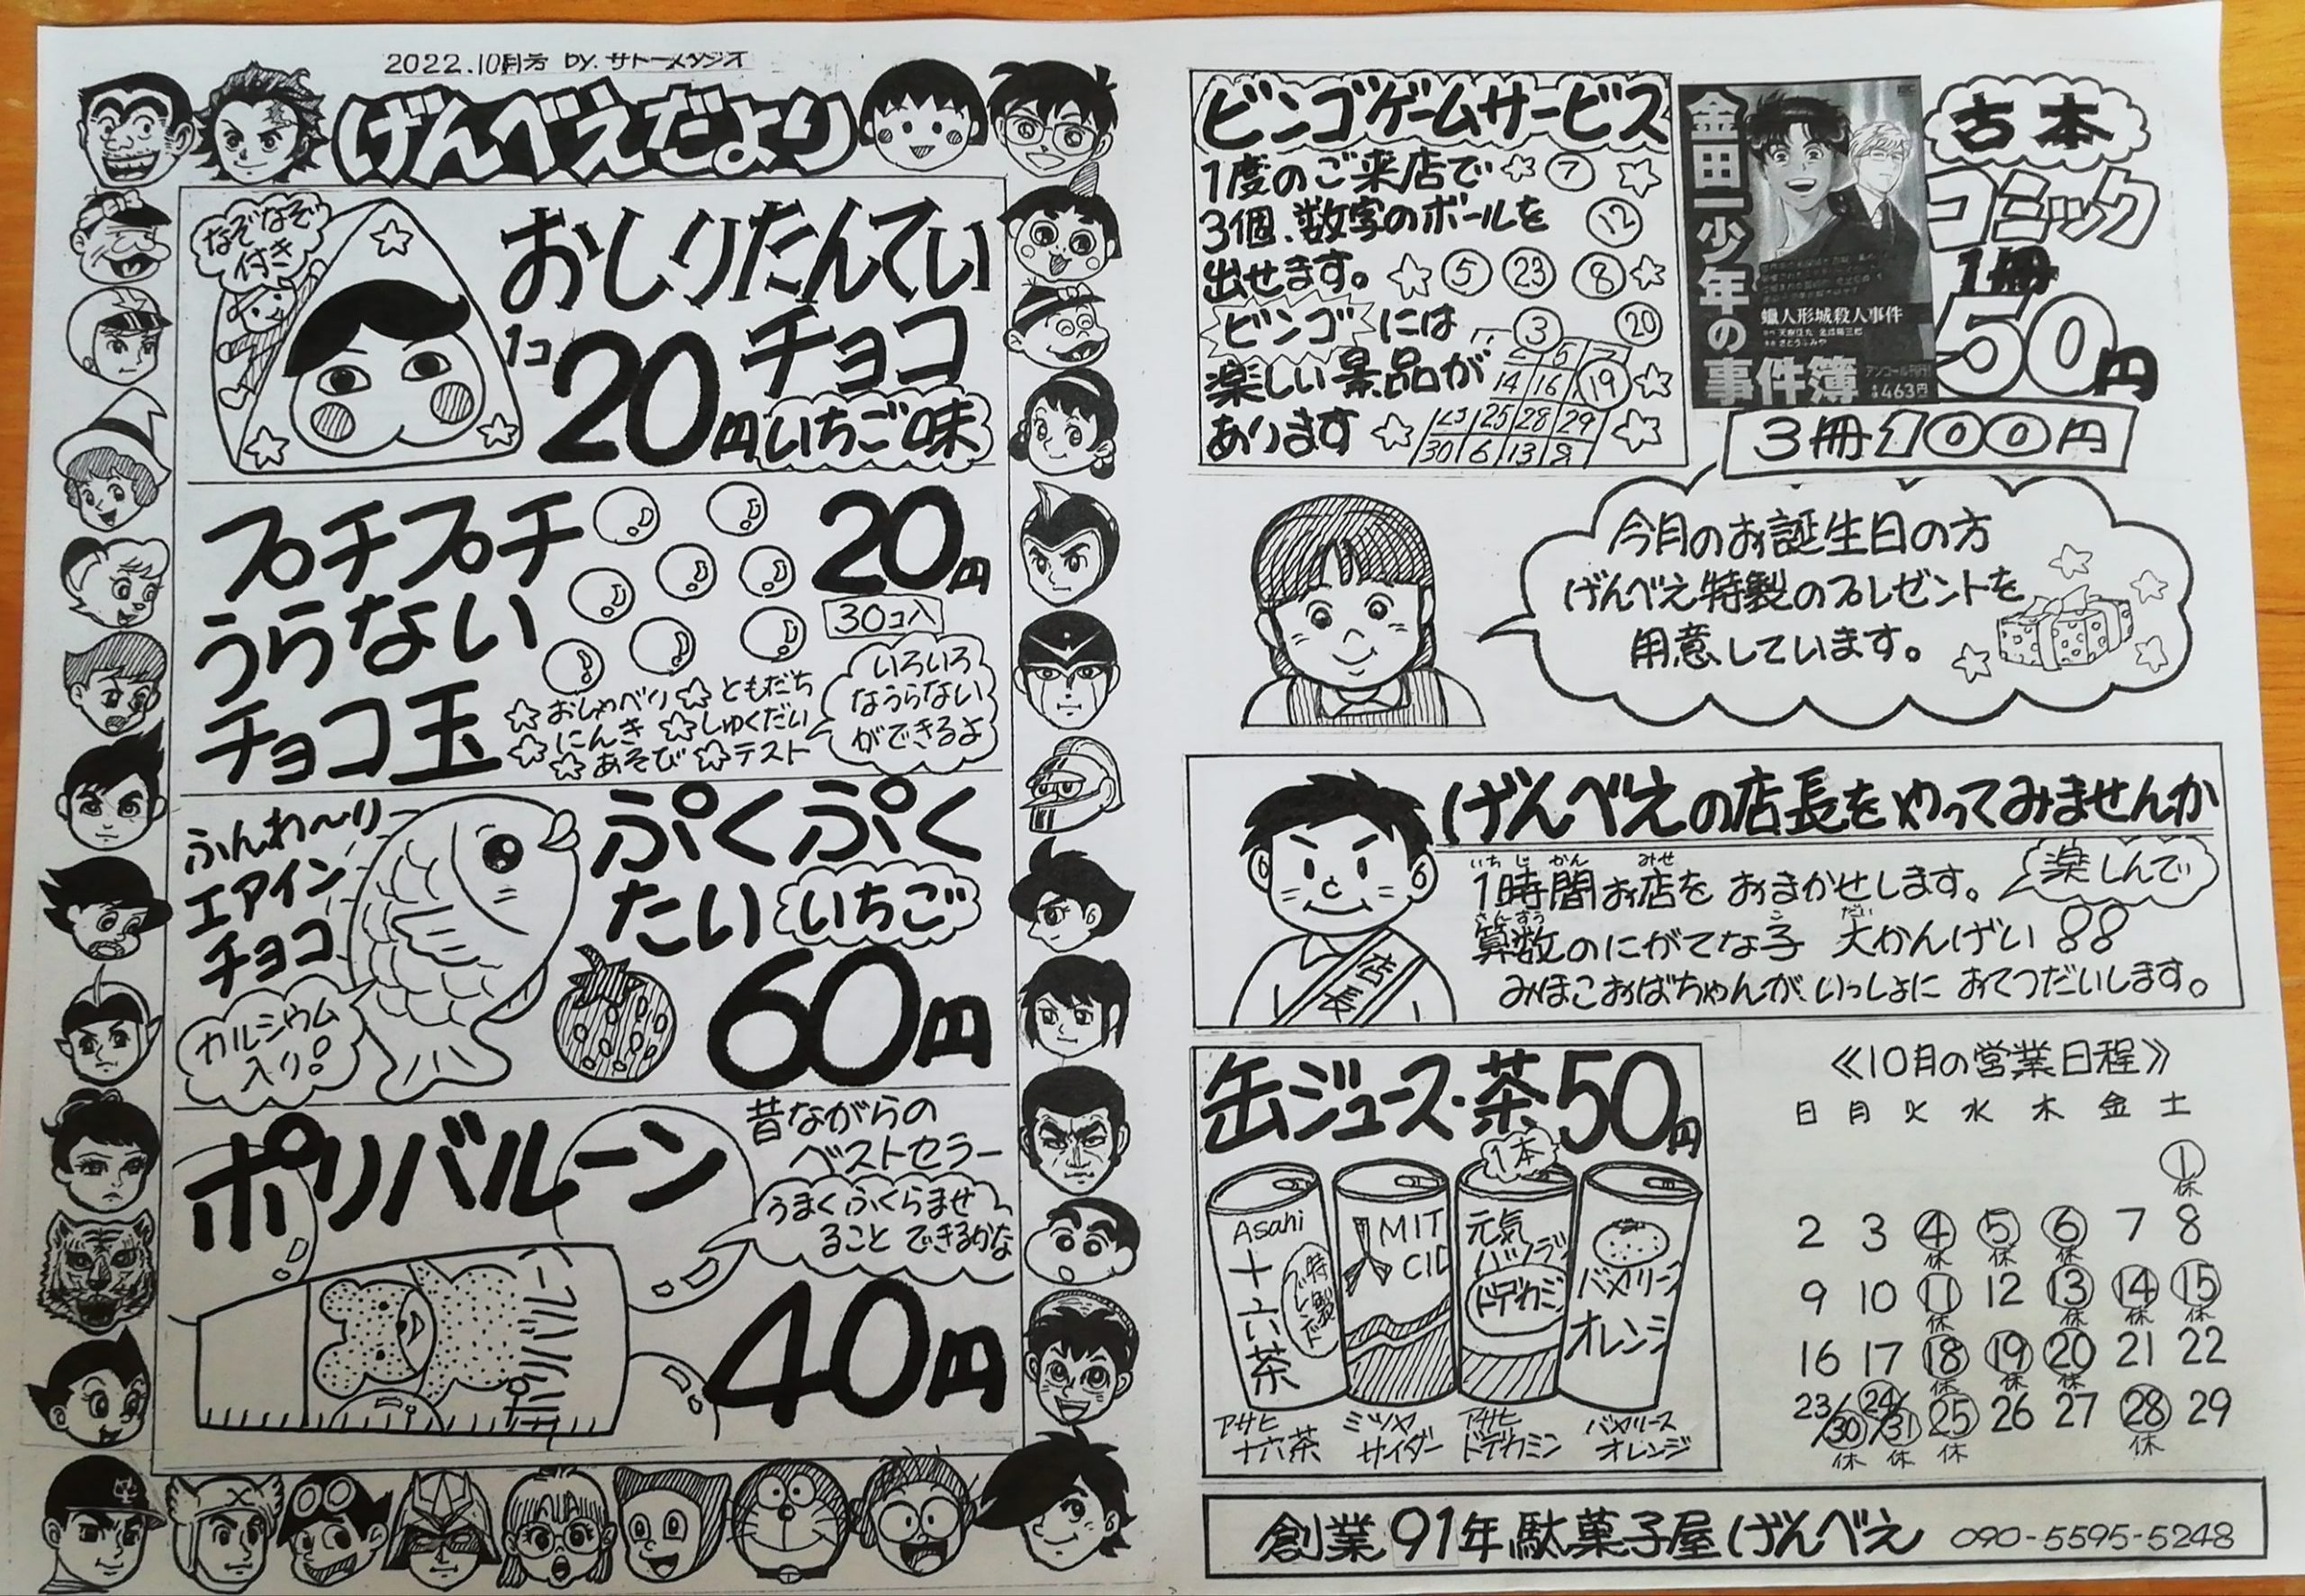 2022.10月号 by.サトースタジオ
げんべえだより
なぞなぞ
付き
おしりたんてい
チョコ
1コ
20円
いちご味
プチプチ
うらない
チョコ玉
20円
30コ入
☆おしゃべり ☆ともだち
☆にんき ☆しゅくだい
☆あそび ☆テスト
いろいろ
なうらない
ができるよ
ふんわ〜り
エアイン
チョコ
カルシウム
入り!
ぷくぷく
たい
いちご
60円
ポリバルーン
昔ながらの
ベストセラー
うまくふくらませ
ること できるかな
ポリバルーン
40円
ビンゴゲームサービス
1度のご来店で
3個、数字のボールを
出せます。
ビンゴには
楽しい景品が
あります
7
12
5 23 8
3 20
14 16 19
25 28 29
30 6 13 8
金田一少年の
事件簿
蠟人形城殺人事件
アンコール刊行!
463円
古本
コミック
1冊
50円
3冊100円
今月のお誕生日の方
げんべえ特製のプレゼントを
用意しています。
げんべえの店長をやってみませんか
いちじかん みせ
1時間お店を おまかせします。
楽しんで
さんすう こ だい
算数のにがてな子 大かんげい!!
みほこおばちゃんが、いっしょに おてつだいします。
店長
缶ジュース・茶50円
1本
Asahi
十六茶
MIT
CID
元気
ハツラツ
ドデカミン
バヤリース
オレンジ
アサヒ
十六茶
ミツヤ
サイダー
アサヒ
ドデカミン
バヤリース
オレンジ
≪10月の営業日程≫
日 月 火 水 木 金 土
1
休
2 3 4 5 6 7 8
休 休 休
9 10 11 12 13 14 15
休 休 休 休
16 17 18 19 20 21 22
休 休 休
23/30 24/31 25 26 27 28 29
休 休 休 休
創業91年駄菓子屋げんべえ 090-5595-5248